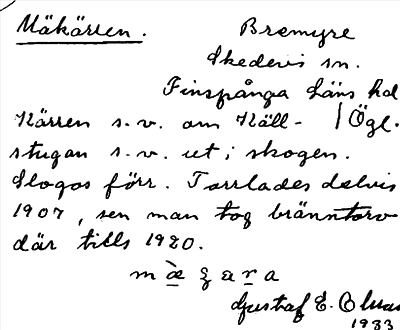 Mäkärren. Bremyre
Skedevis sn.
Finspånga läns hd
Kärren s.v. om Käll- / Ögl.
stugan s.v. ut i skogen.
Slogos förr. Torrlades delvis
1907, sen man tog bränntorv
där tills 1920.
Gustaf E.
1933